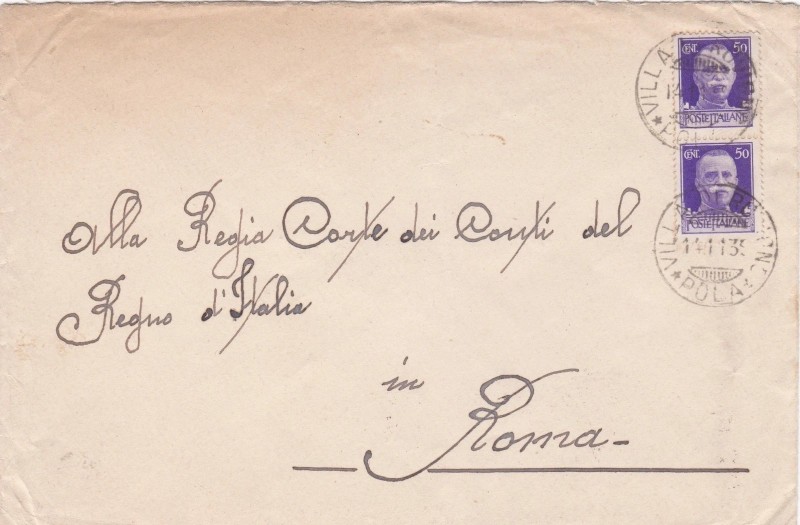 CENT. 50
POSTE ITALIANE
CENT. 50
POSTE ITALIANE
VILLA
POLA
14 11 35
Alla Regia Corte dei Conti del
Regno d'Italia
in
Roma